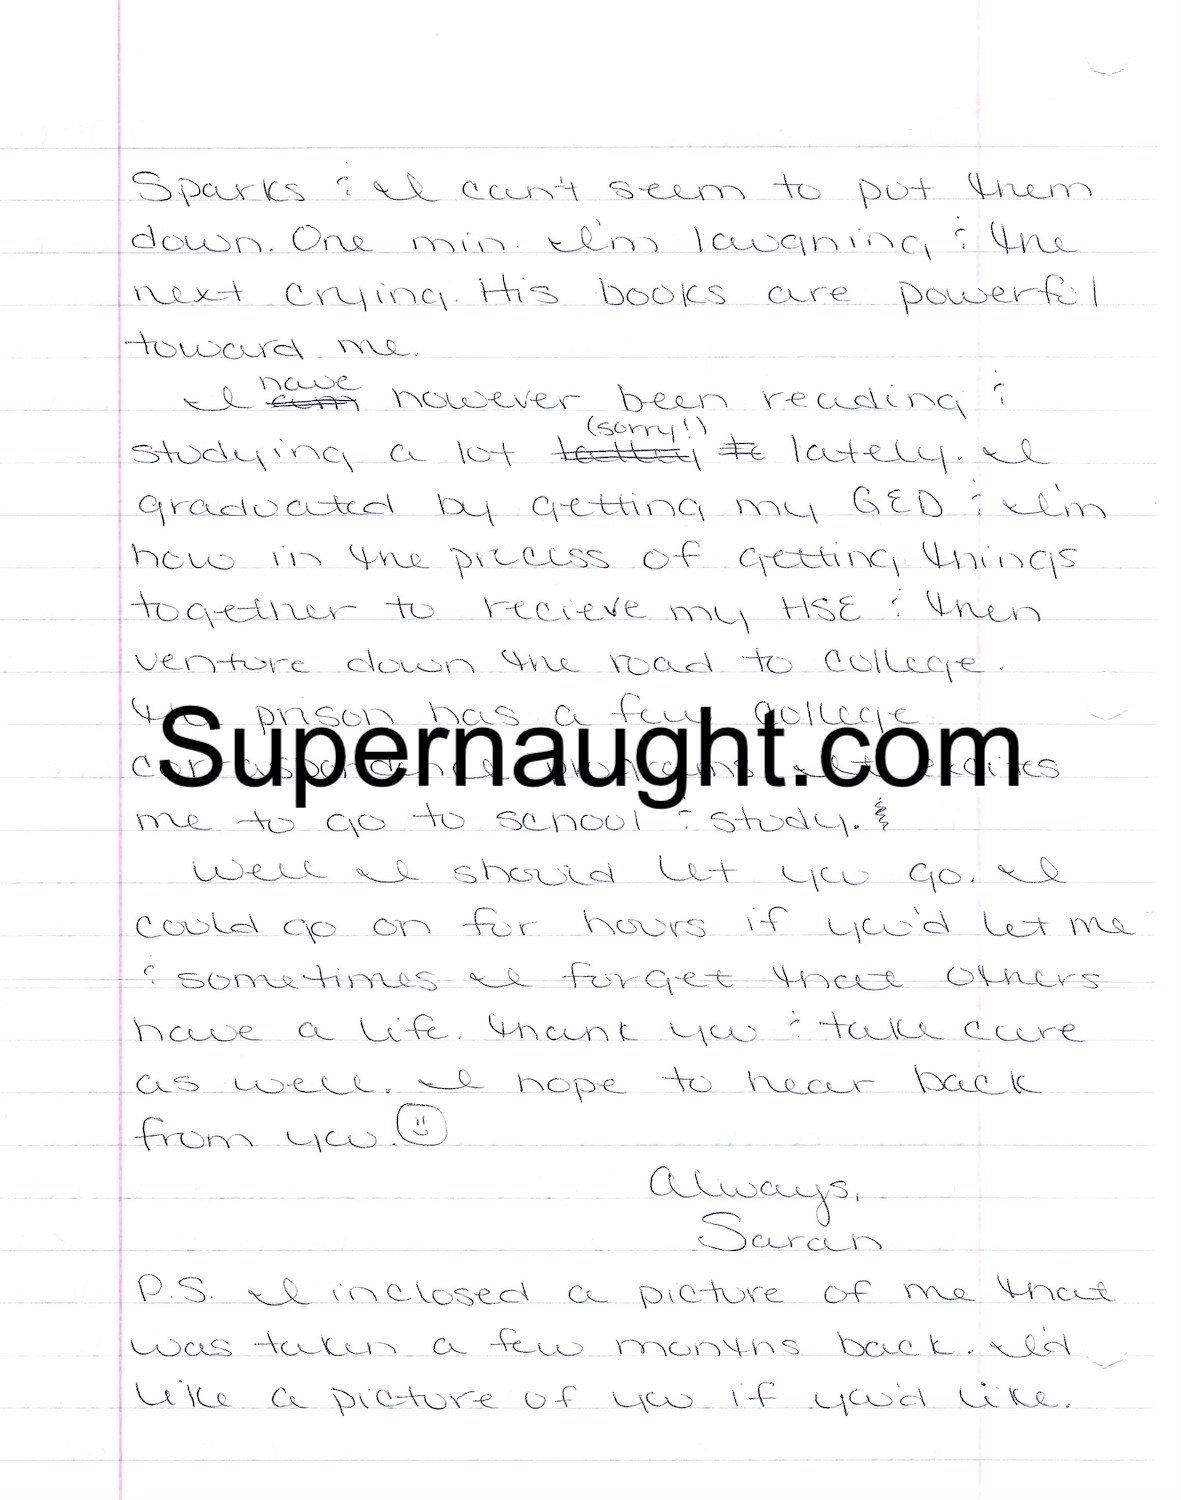 Sparks & I can't seem to put them
down. One min. I'm laughing & the
next crying. His books are powerful
toward me.
have
I am however been reading &
(sorry!)
studying a lot lately. I
graduated by getting my GED & I'm
now in the process of getting things
together to recieve my HSE & then
venture down the road to college.
The prison has a few college
Supernaught.com
programs. It excites
me to go to school & study.
Well I should let you go. I
could go on for hours if you'd let me
& sometimes I forget that others
have a life. Thank you & take care
as well. I hope to hear back
from you.
Always,
Sarah
P.S. I inclosed a picture of me that
was taken a few months back. I'd
like a picture of you if you'd like.